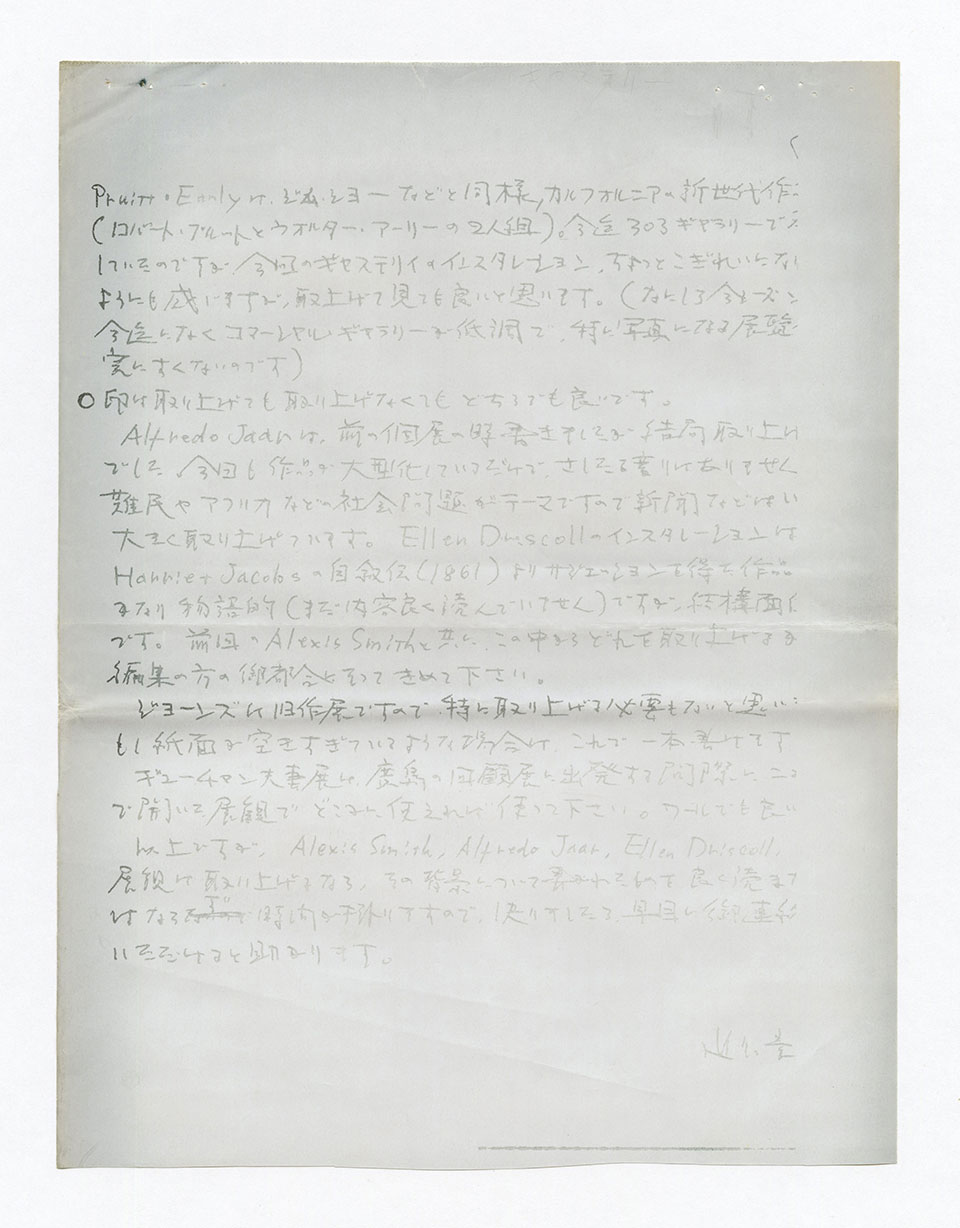 Pruitt・Earlyは、ジム・ショーなどと同様、カルフォルニアの新世代作
(ロバート・プルットとウオルター・アーリーの2人組)。今迄303ギャラリーで
していたのですが、今回のギャステリイのインスタレーション、ちょっとこぎれいにな
ようにも感じますが、取上げて見ても良いと思います。(なにしろ今シーズン
今迄になくコマーシャル・ギャラリーが低調で、特に写真になる展覧
実にすくないのです)
○ 印は取り上げても取り上げなくてもどちらでも良いです。
Alfredo Jaarは、前の個展の時書きましたが結局取り上げ
でした。今回も作品が大型化しているだけで、さしたる変りはありません
難民やアフリカなどの社会問題がテーマですので新聞などはい
大きく取り上げています。Ellen Driscollのインスタレーションは
Harriet Jacobsの自叙伝(1861)よりサジェッションを得た作品
かなり物語的(まだ内容良く読んでいません)ですが、結構面
です。前回のAlexis Smithと共に、この中からどれを取り上げるか
編集の方の御都合によってきめて下さい。
ジョーンズは旧作展ですので、特に取り上げる必要もないと思い
もし紙面が空きすぎているような場合は、これで一本書けます
ギューチャン夫妻展は、鹿島の回顧展に出発する間際に、ニュ
で開いた展観で どこかに使えれば使って下さい。ウールでも良い
以上ですが、Alexis Smith, Alfredo Jaar, Ellen Driscoll,
展観は取り上げるなら、その背景について書かれたものを良く読まて
はならず時間が掛りますので、決りましたら、早目に御連絡
いただけると助かります。